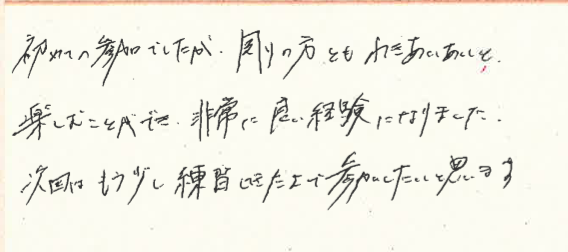 初めての参加でしたが、周りの方とも わきあいあいと
楽しむことができ、非常に良い経験になりました。
次回はもう少し練習してきた上で参加したいと思います